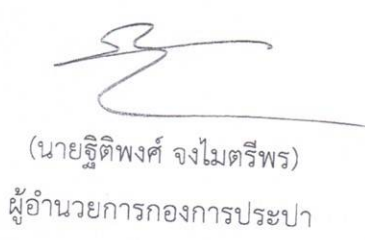 (นายฐิติพงศ์ จงไมตรีพร)
ผู้อำนวยการกองการประปา